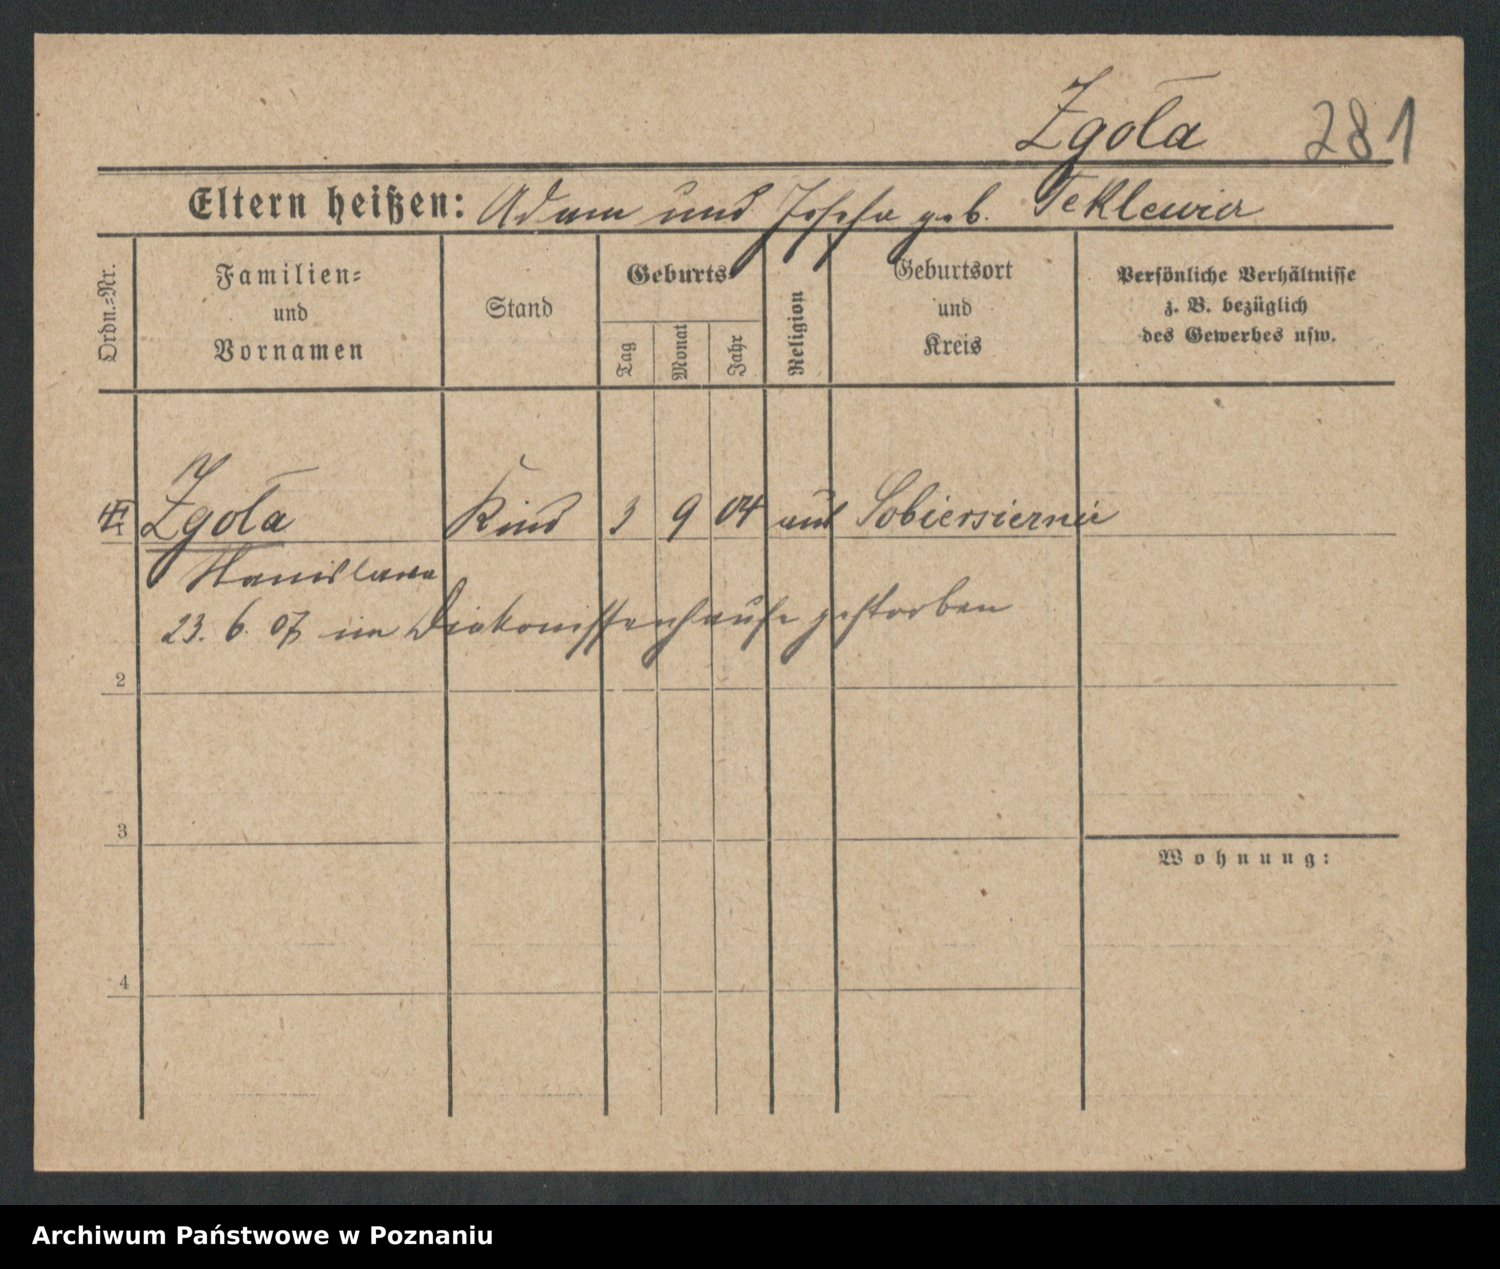 Zgoła 281
Eltern heißen: Adam und Josefa geb. Teklewicz
Ordn.-Nr.
Familien-
und
Vornamen
Stand
Geburts-
Tag
Monat
Jahr
Religion
Geburtsort
und
Kreis
Persönliche Verhältnisse
z. B. bezüglich
des Gewerbes usw.
Zgoła Kind 3 9 04 aus
Stanislawa
23. 6. 07 im Diakonissenhause gestorben
2
3
Wohnung:
4
Archiwum Państwowe w Poznaniu